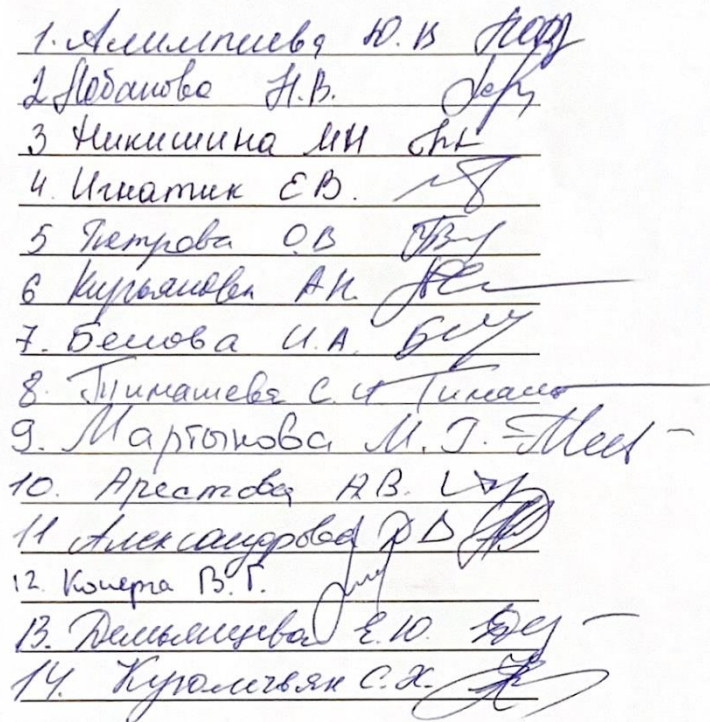 1. Алимпиева Ю.В
2 Лобанова Н.В.
3 Никишина МН
4. Игнатик ЕВ.
5 Петрова О.В
6 Курьянова АН.
7. Белова И.А.
8. Тимашева С.И
9. Мартынова М.Г.
10. Арестова АВ.
11 Александрова
12. Коперта В.Г.
13. Демьянцева Е.Ю.
14. С.Х.